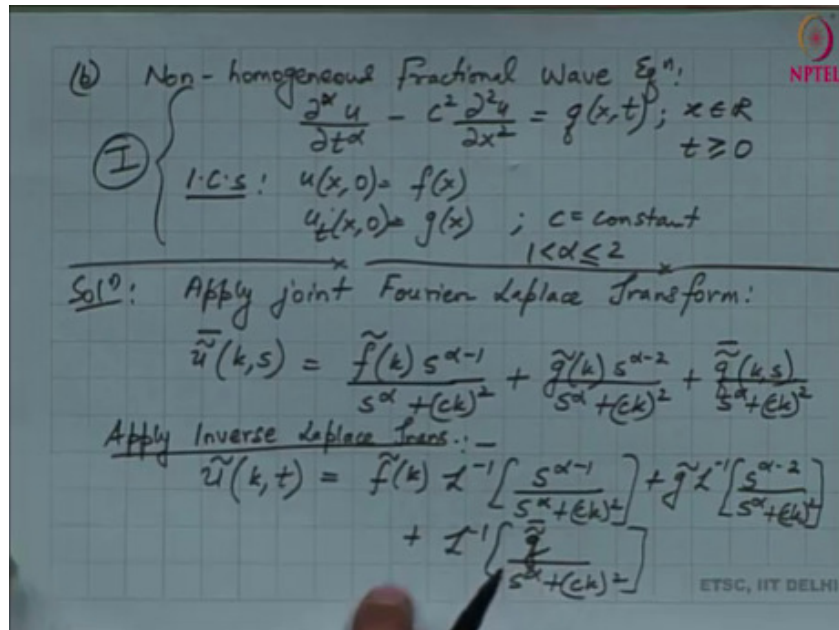 NPTEL
(b) Non-homogeneous Fractional Wave Eqⁿ:
∂^α u / ∂t^α - c² ∂²u / ∂x² = q(x,t) ; x ∈ R
t ≥ 0
I
I.C.s: u(x,0) = f(x)
u_t(x,0) = g(x) ; c = constant
1 < α ≤ 2
Solⁿ: Apply joint Fourier Laplace Transform:
ũ̄(k,s) = f̃(k) s^(α-1) / (s^α + (ck)²) + g̃(k) s^(α-2) / (s^α + (ck)²) + q̃̄(k,s) / (s^α + (ck)²)
Apply Inverse Laplace Trans.:-
ũ(k,t) = f̃(k) L⁻¹[s^(α-1) / (s^α + (ck)²)] + g̃ L⁻¹[s^(α-2) / (s^α + (ck)²)]
+ L⁻¹[q̃̄ / (s^α + (ck)²)]
ETSC, IIT DELHI